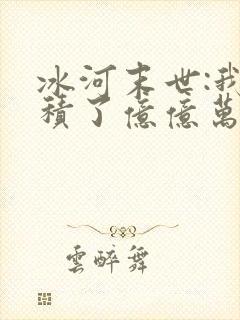 冰河末世:我
積了億億萬
雲醉舞